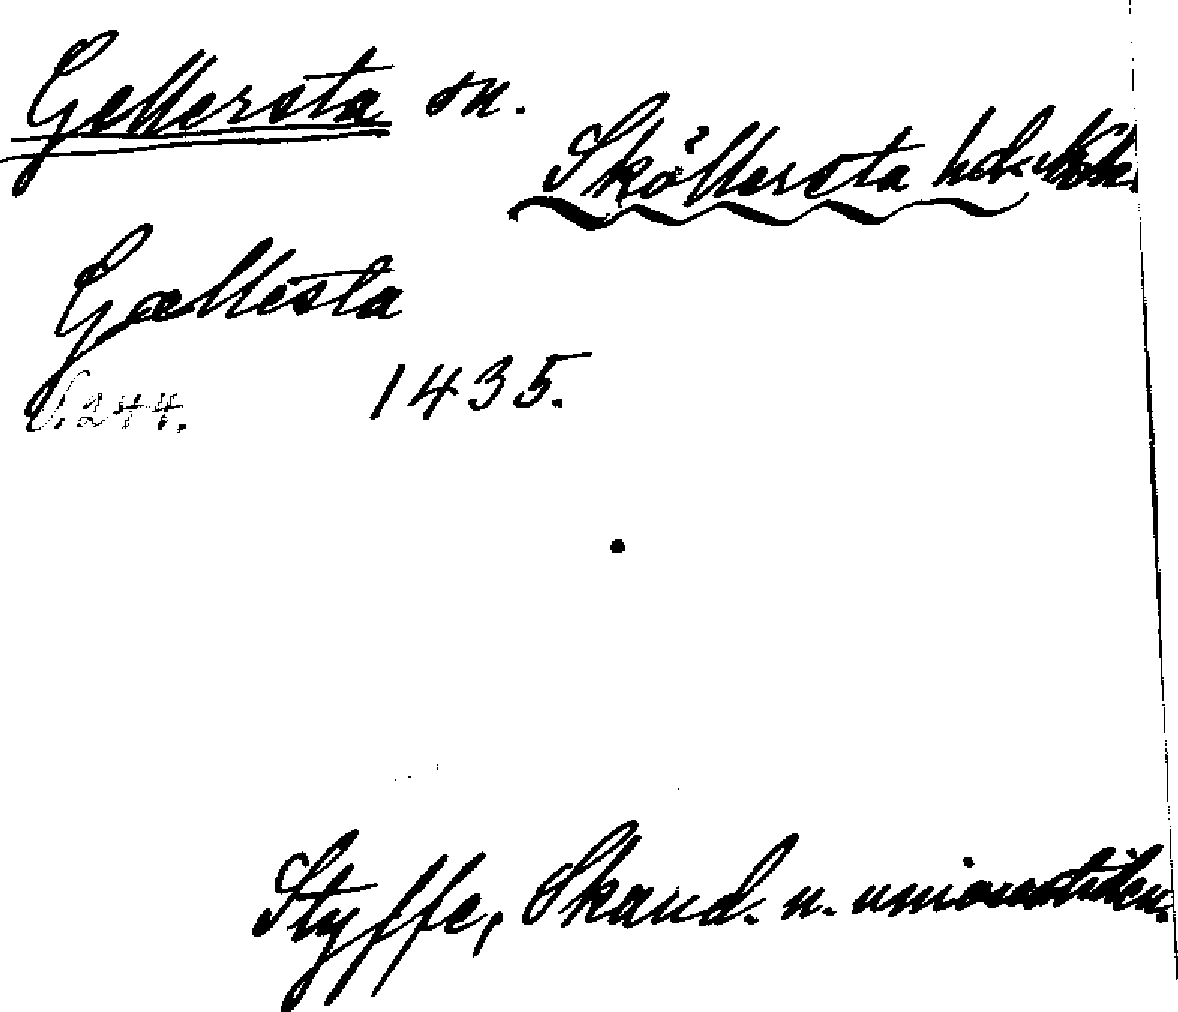 Gellersta sn.
Sköllersta hd.
Gællesta
S. 244. 1435.
Styffe, Skand. u. unionstiden.